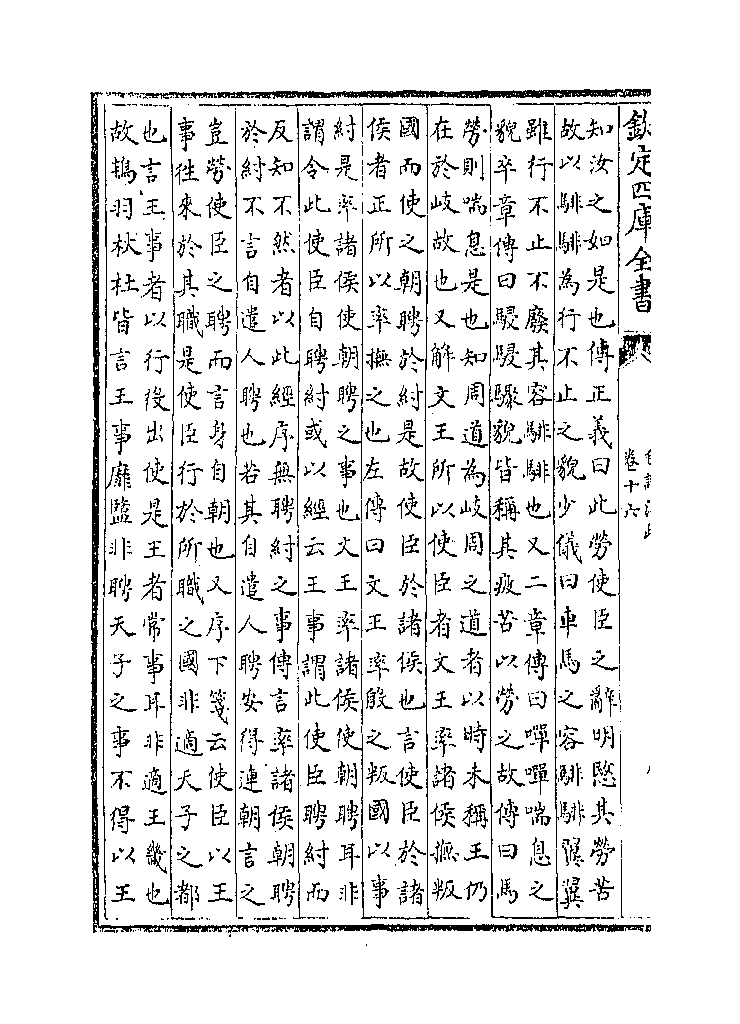 欽定四庫全書
卷十六
知汝之如是也傳正義曰此勞使臣之辭明愍其勞苦
故以騑騑為行不止之貌少儀曰車馬之容騑騑翼翼
雖行不止不廢其容騑騑也又二章傳曰嘽嘽喘息之
貌卒章傳曰駸駸驟貌皆稱其疲苦以勞之故傳曰馬
勞則喘息是也知周道為岐周之道者以時未稱王仍
在於岐故也又解文王所以使臣者文王率諸侯撫叛
國而使之朝聘於紂是故使臣於諸侯也言使臣於諸
侯者正所以率撫之也左傳曰文王率殷之叛國以事
紂是率諸侯使朝聘之事也文王率諸侯使朝聘耳非
謂令此使臣自聘紂或以經云王事謂此使臣聘紂而
反知不然者以此經序無聘紂之事傳言率諸侯朝聘
於紂不言自遣人聘也若其自遣人聘安得連朝言之
豈勞使臣之聘而言身自朝也又序下箋云使臣以王
事往來於其職是使臣行於所職之國非適天子之都
也言王事者以行役出使是王者常事耳非適王畿也
故鴇羽杕杜皆言王事靡盬非聘天子之事不得以王